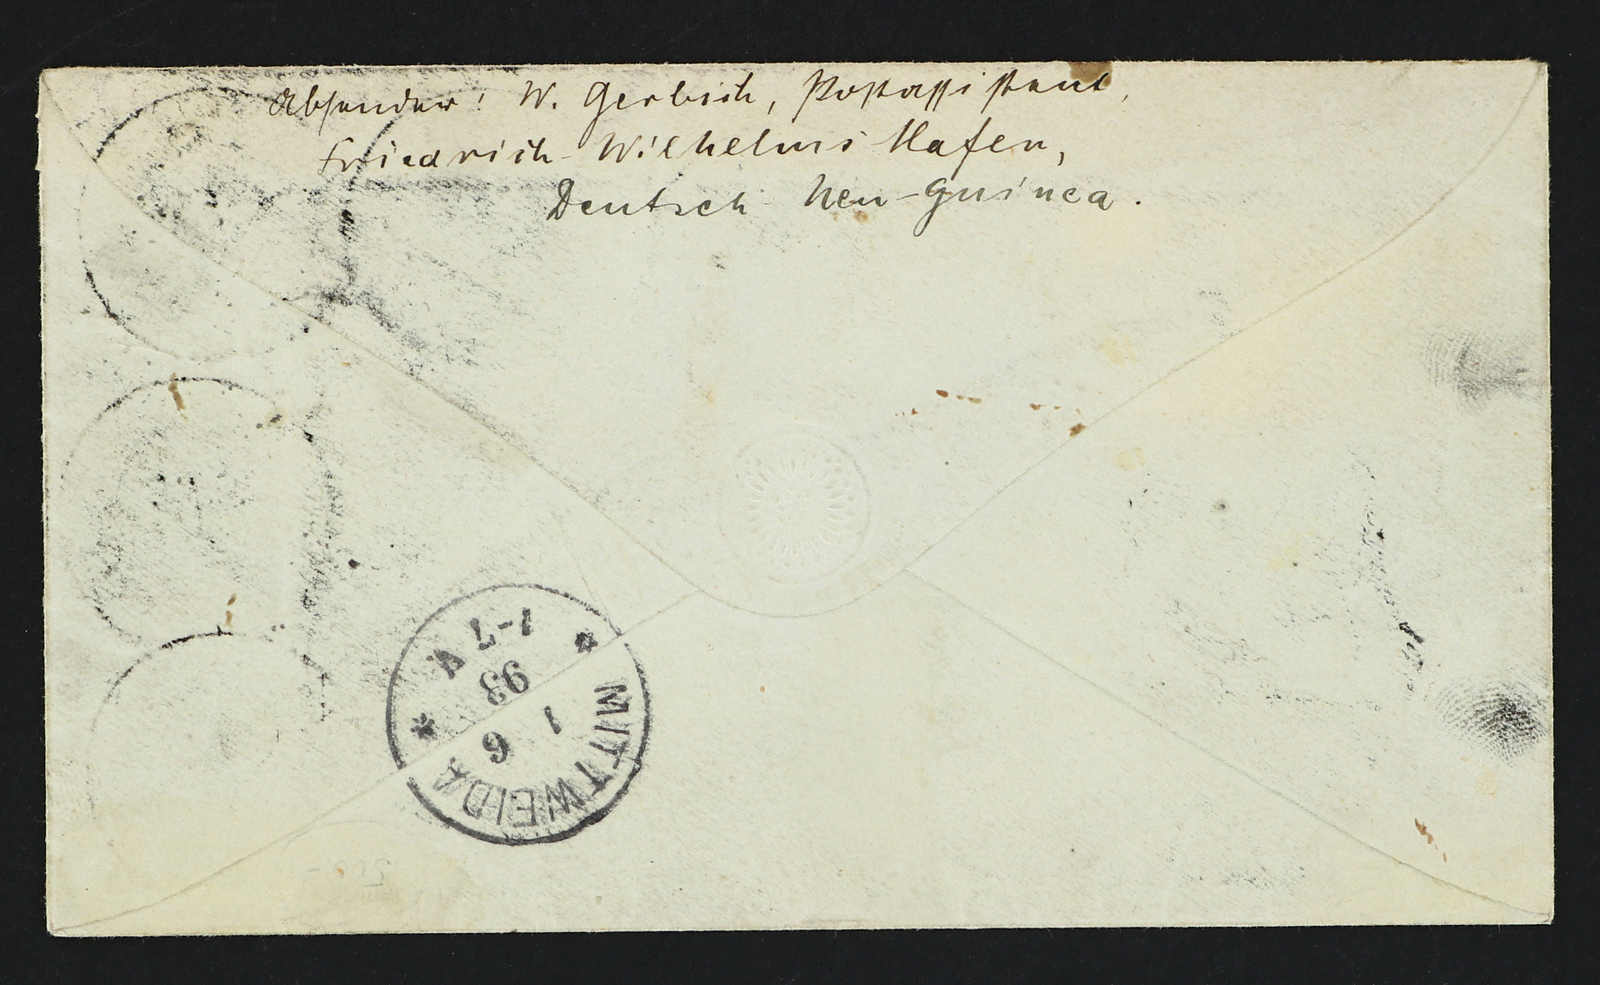 Absender: W. Gerbich, Postassistent,
Friedrich-Wilhelms Hafen,
Deutsch Neu-Guinea.
MITTWEIDA
1 6
93
* 1-7 V *